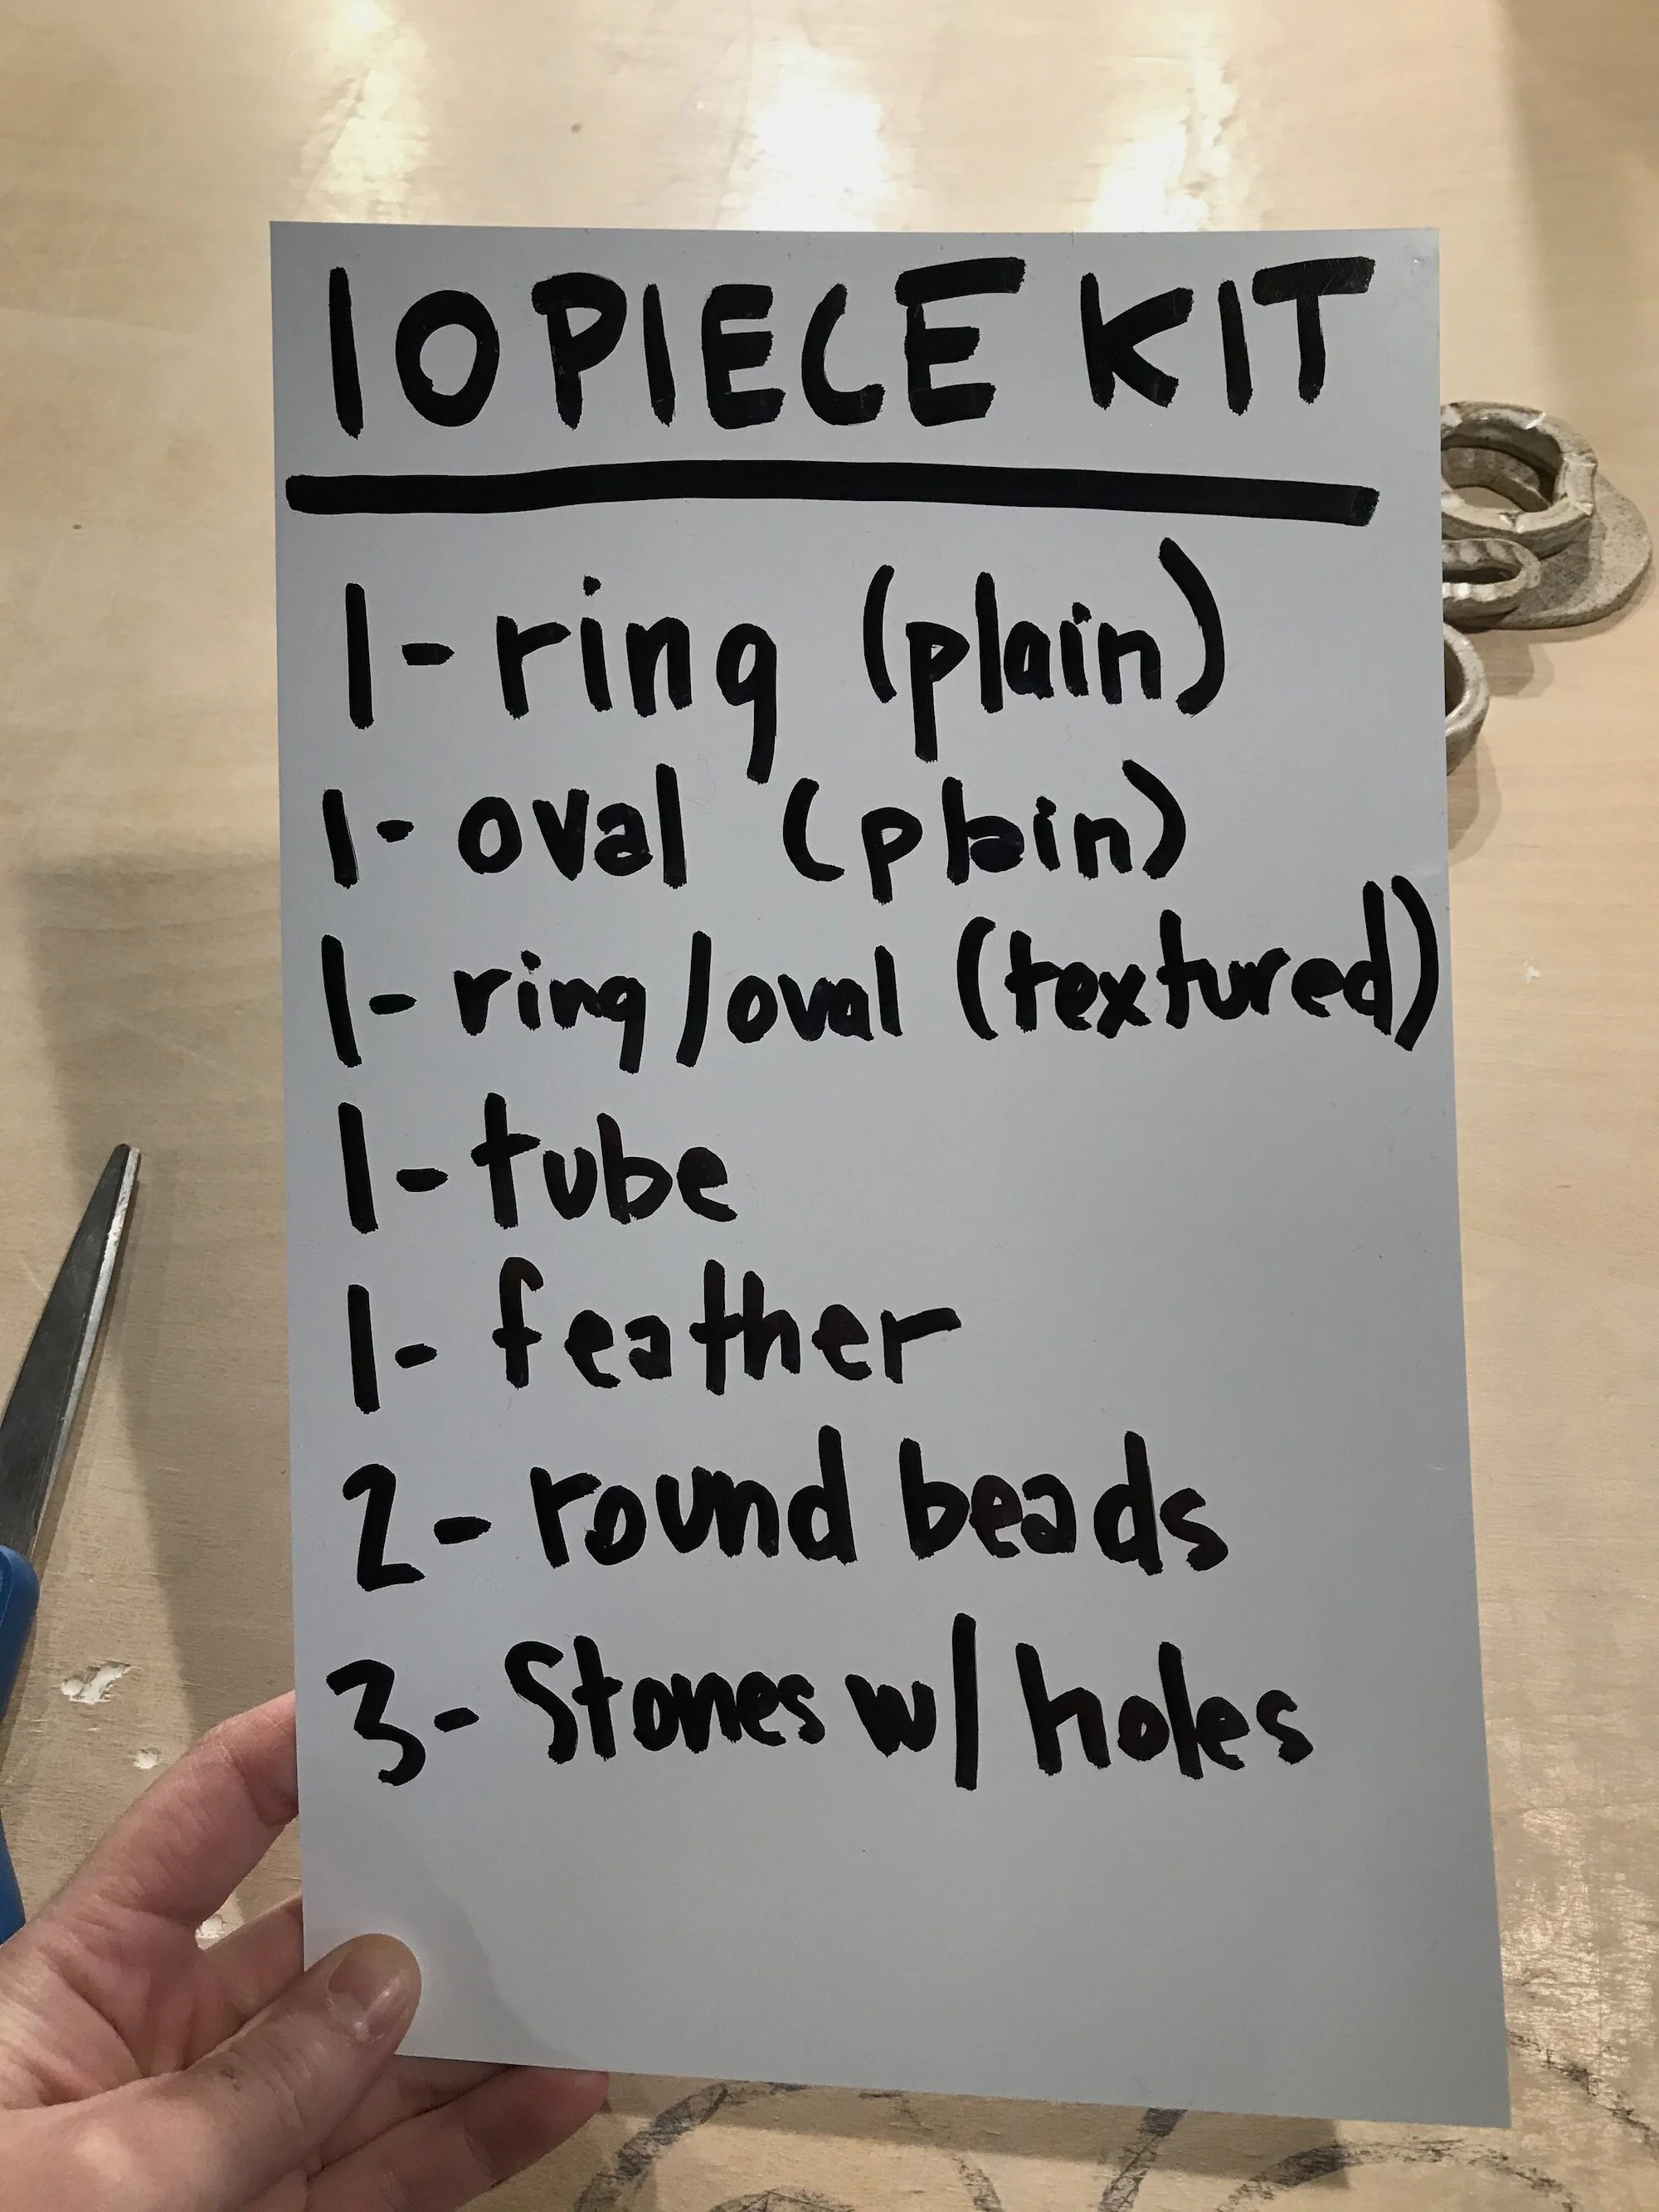 10 PIECE KIT
1- ring (plain)
1- oval (plain)
1- ring/oval (textured)
1- tube
1- feather
2- round beads
3- Stones w/ holes